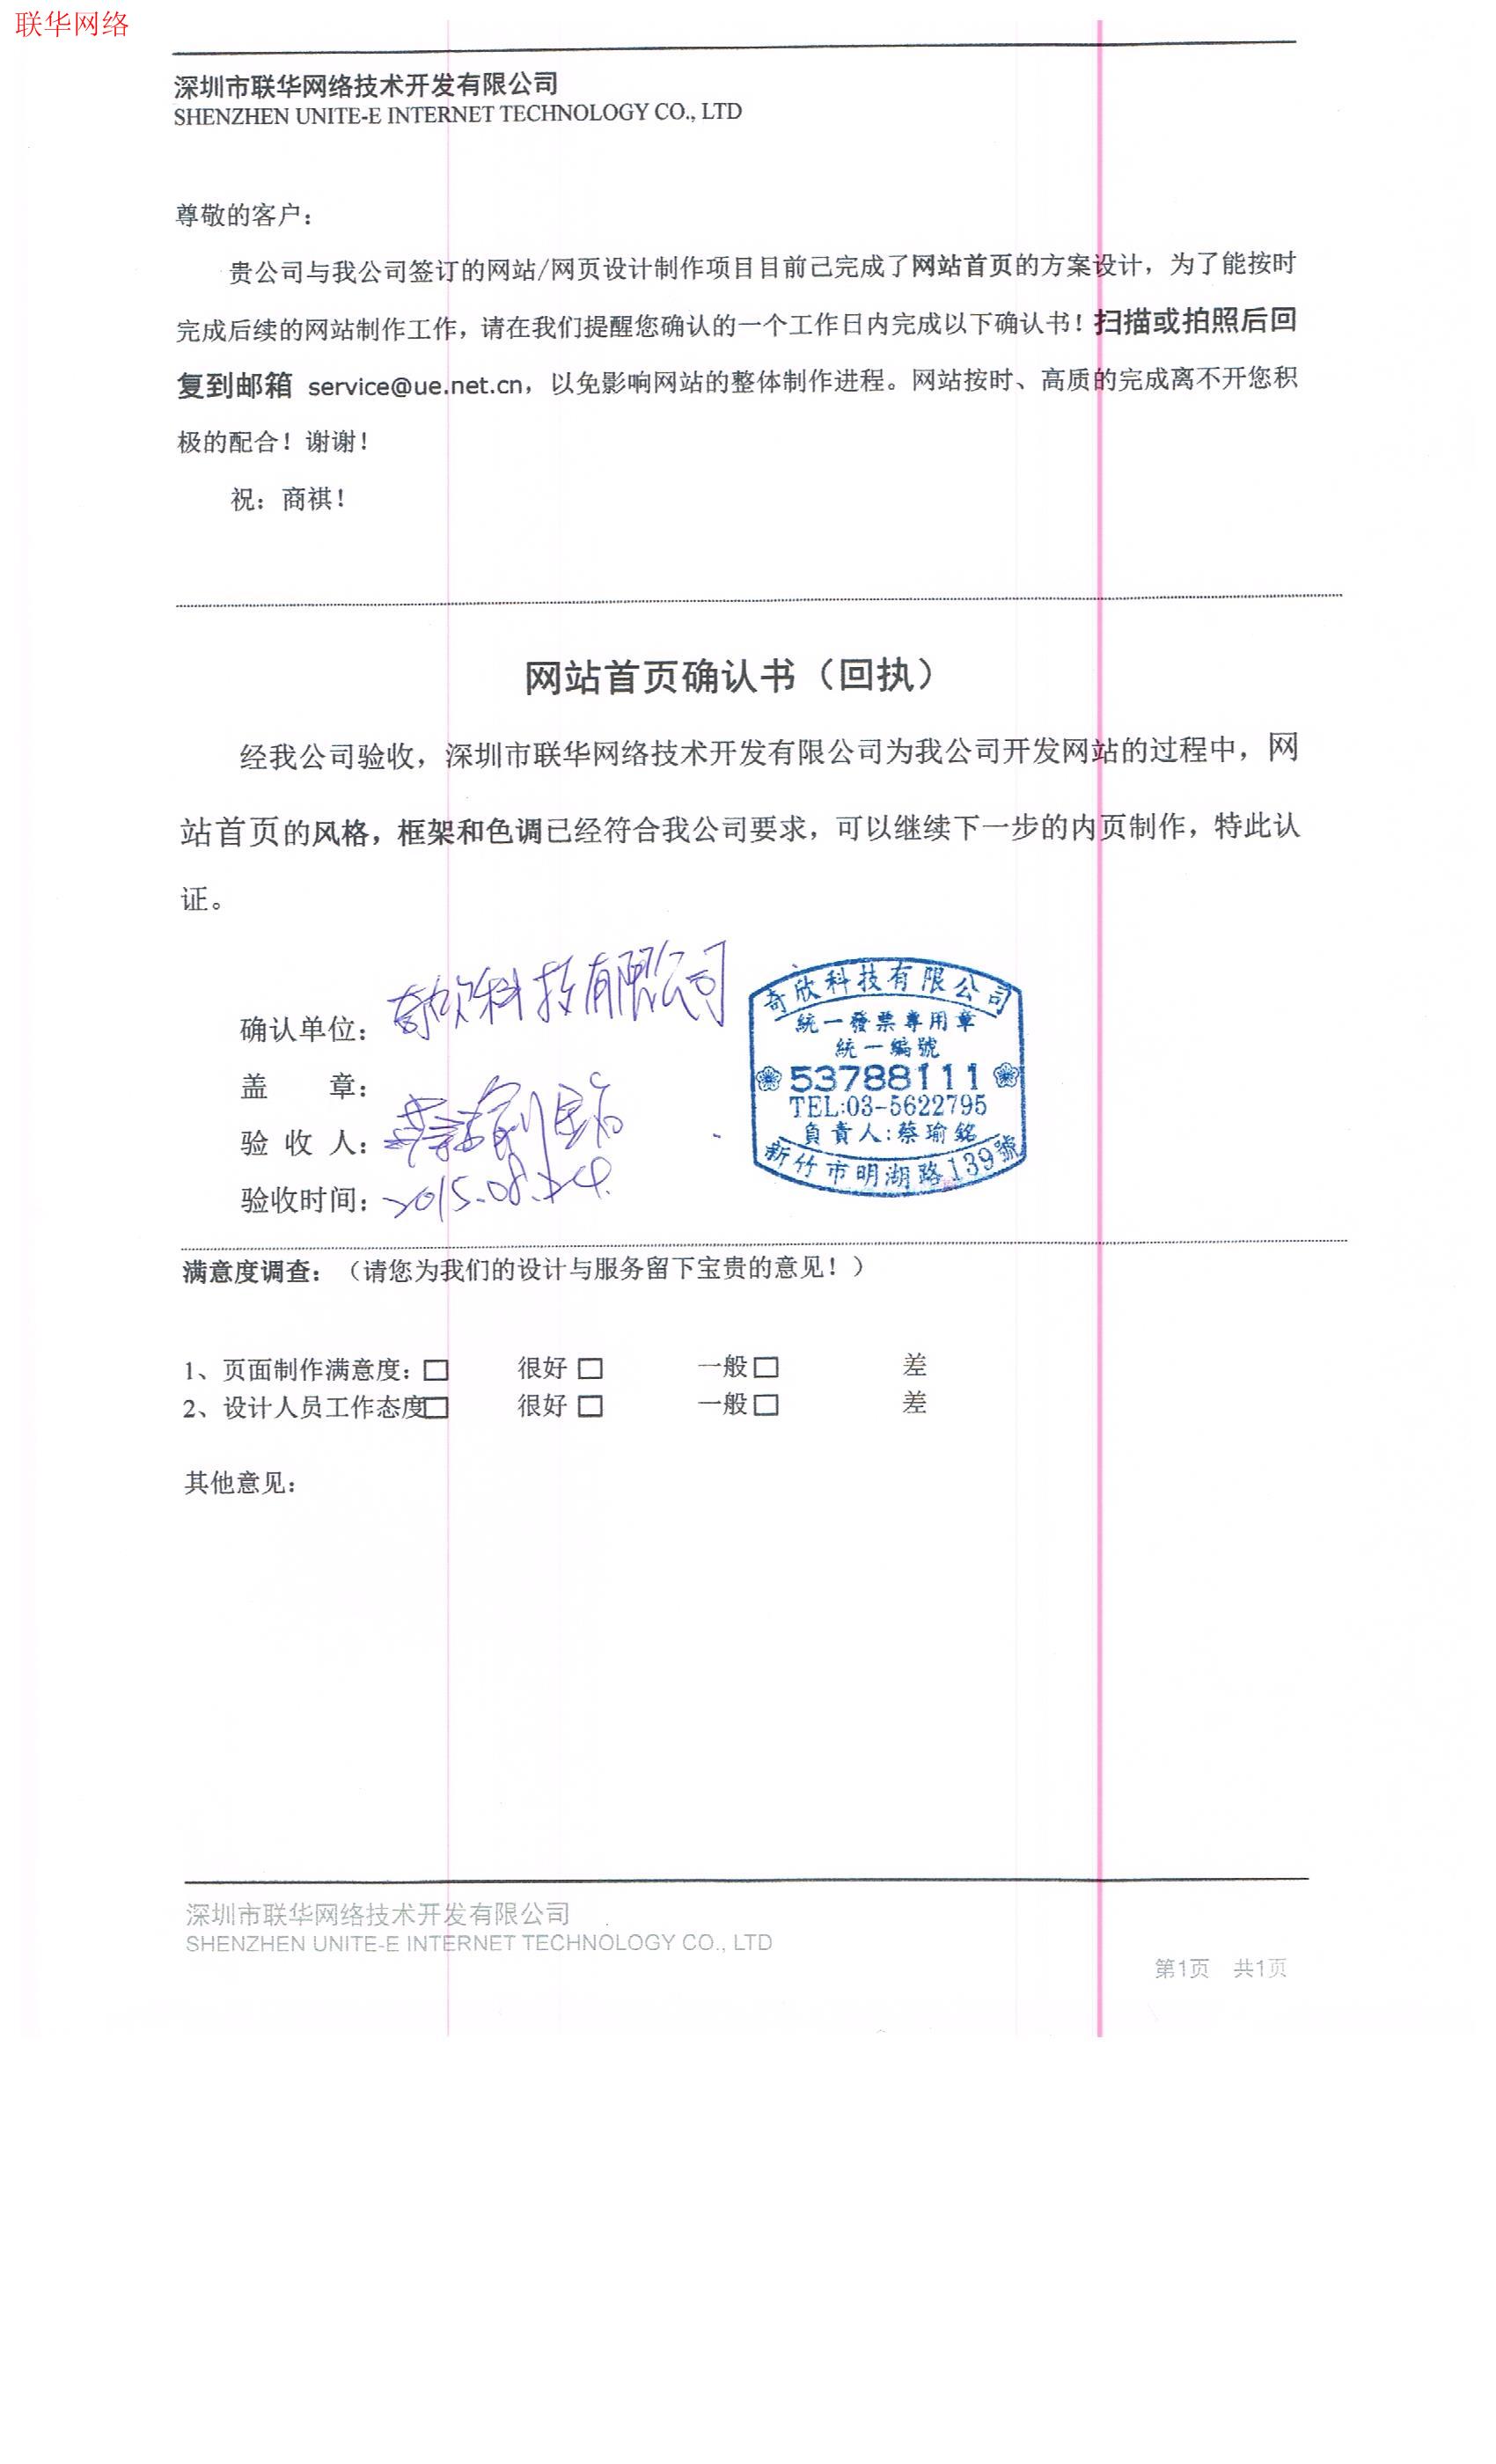 联华网络
深圳市联华网络技术开发有限公司
SHENZHEN UNITE-E INTERNET TECHNOLOGY CO., LTD
尊敬的客户：
贵公司与我公司签订的网站/网页设计制作项目目前已完成了网站首页的方案设计，为了能按时
完成后续的网站制作工作，请在我们提醒您确认的一个工作日内完成以下确认书！扫描或拍照后回
复到邮箱 service@ue.net.cn，以免影响网站的整体制作进程。网站按时、高质的完成离不开您积
极的配合！谢谢！
祝：商祺！
网站首页确认书（回执）
经我公司验收，深圳市联华网络技术开发有限公司为我公司开发网站的过程中，网
站首页的风格，框架和色调已经符合我公司要求，可以继续下一步的内页制作，特此认
证。
确认单位：奇欣科技有限公司
盖 章：
验 收 人：
验收时间：2015.08.24.
奇欣科技有限公司
統一發票專用章
統一編號
53788111
TEL:03-5622795
負責人:蔡瑜銘
新竹市明湖路139號
满意度调查：（请您为我们的设计与服务留下宝贵的意见！）
1、页面制作满意度：□ 很好 □ 一般 □ 差
2、设计人员工作态度□ 很好 □ 一般 □ 差
其他意见：
深圳市联华网络技术开发有限公司
SHENZHEN UNITE-E INTERNET TECHNOLOGY CO., LTD
第1页 共1页